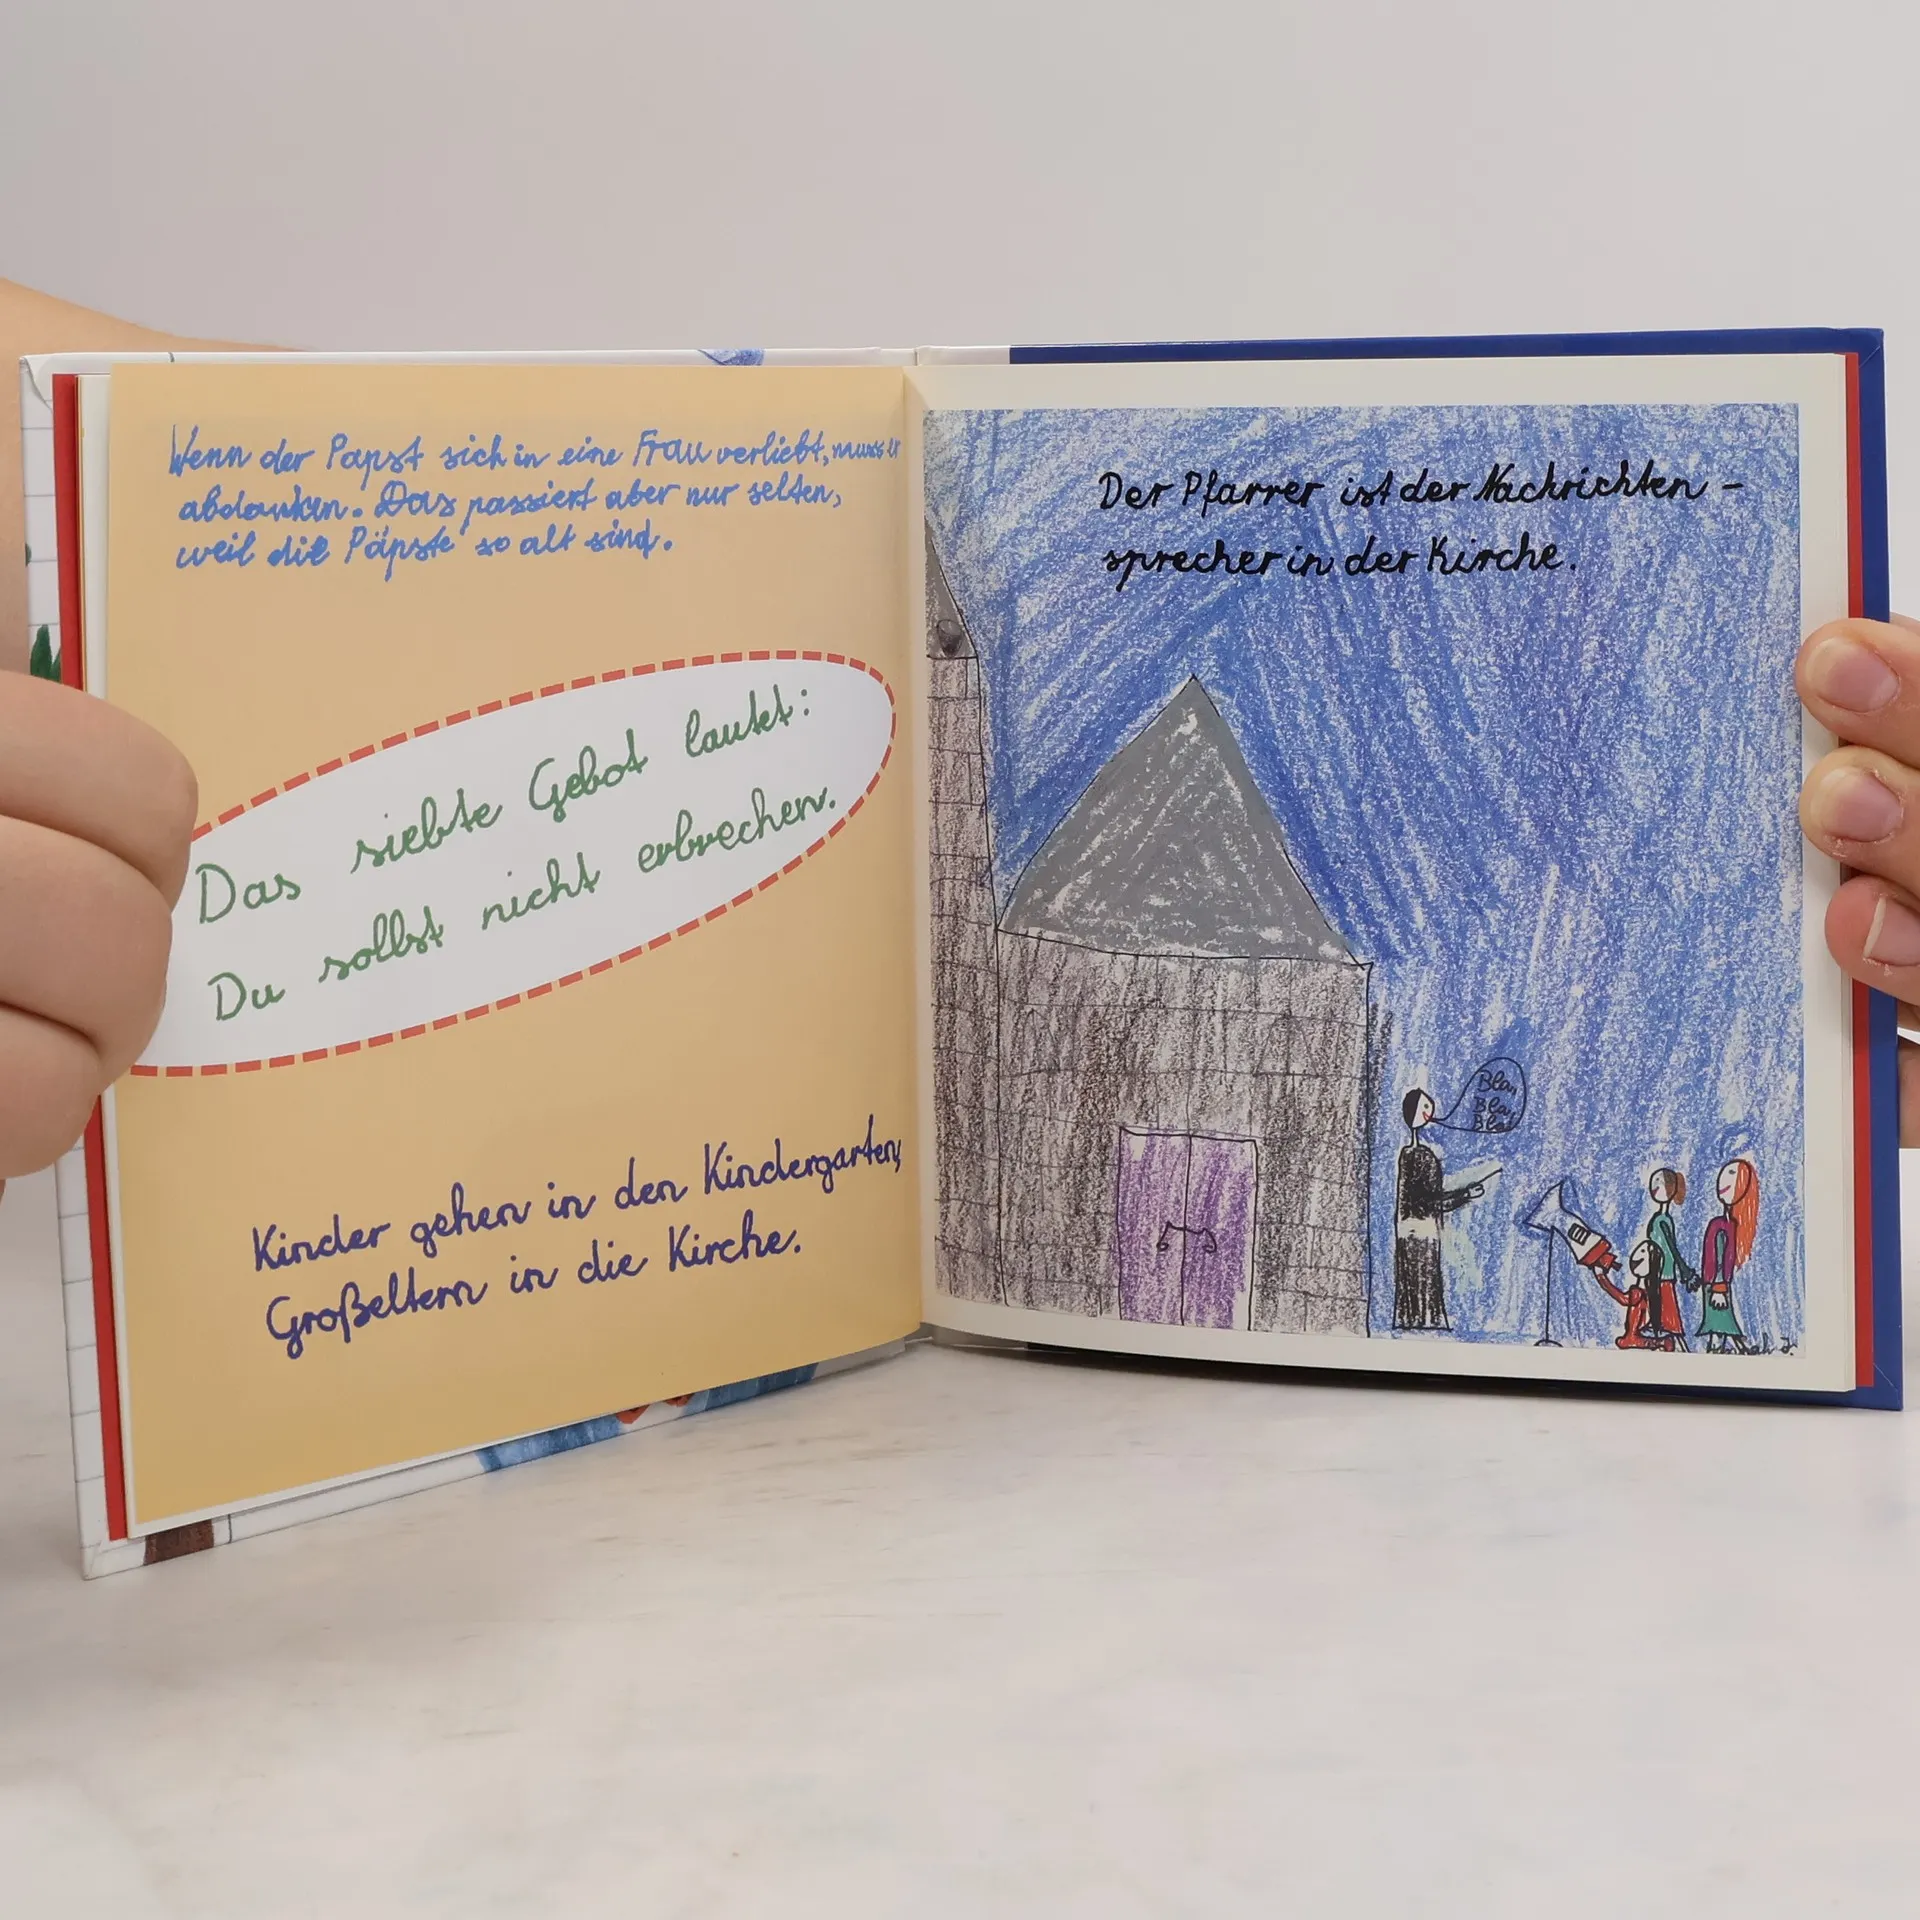 Wenn der Papst sich in eine Frau verliebt, muss er
abdanken. Das passiert aber nur selten,
weil die Päpste so alt sind.
Das siebte Gebot lautet:
Du sollst nicht erbrechen.
Kinder gehen in den Kindergarten,
Großeltern in die Kirche.
Der Pfarrer ist der Nachrichten-
sprecher in der Kirche.
Bla,
Bla,
Bla!